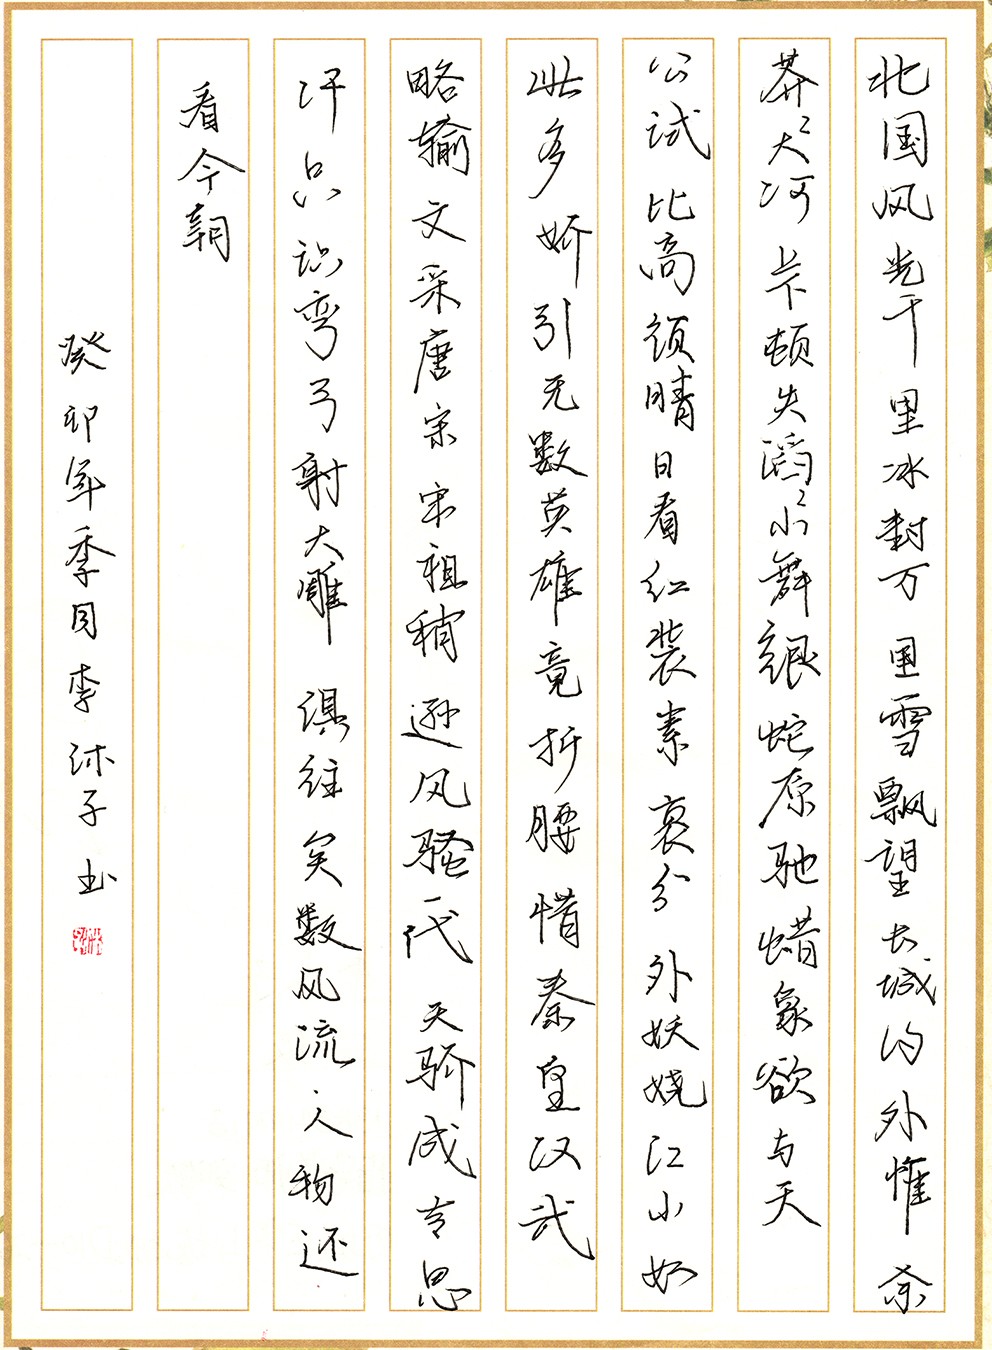 北国风光千里冰封万里雪飘望长城内外惟余
莽々大河上下顿失滔々山舞银蛇原驰蜡象欲与天
公试比高须晴日看红装素裹分外妖娆江山如
此多娇引无数英雄竞折腰惜秦皇汉武
略输文采唐宗宋祖稍逊风骚一代天骄成吉思
汗只识弯弓射大雕俱往矣数风流人物还
看今朝
癸卯年季月李沐子书